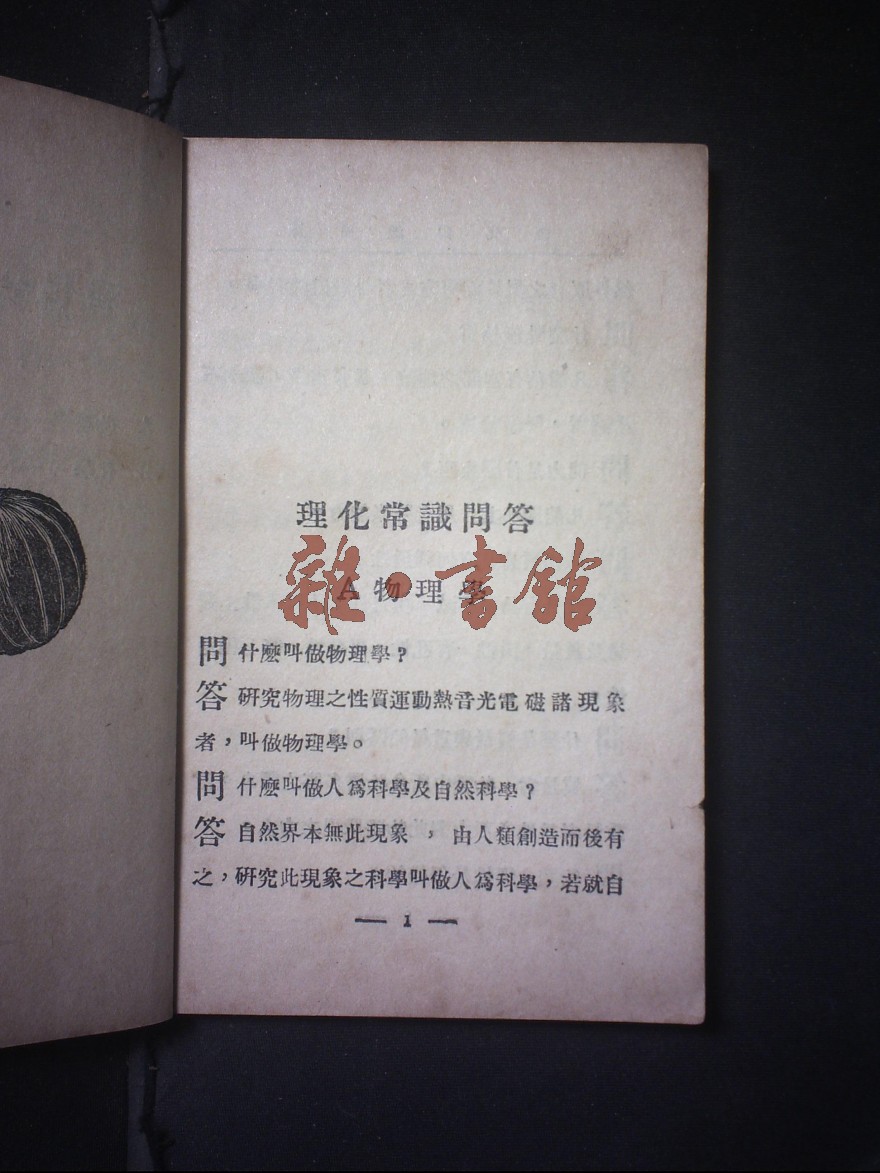 理化常識問答
A物理學
雜·書館
問 什麽叫做物理學？
答 研究物理之性質運動熱音光電磁諸現象
者，叫做物理學。
問 什麽叫做人爲科學及自然科學？
答 自然界本無此現象，由人類創造而後有
之，研究此現象之科學叫做人爲科學，若就自
— 1 —